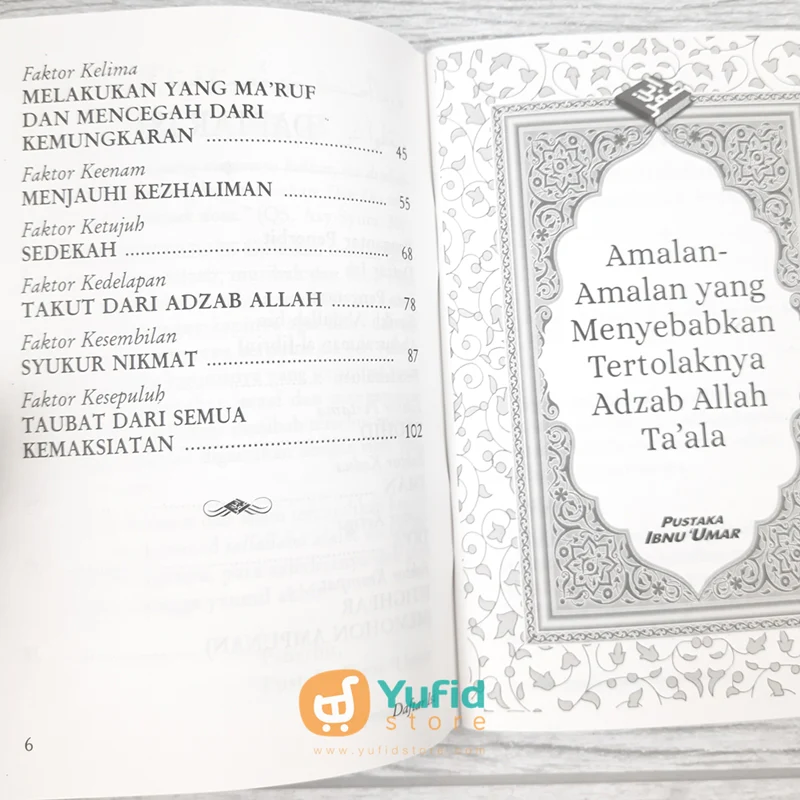 Faktor Kelima
MELAKUKAN YANG MA'RUF
DAN MENCEGAH DARI
KEMUNGKARAN ........................................ 45
Faktor Keenam
MENJAUHI KEZHALIMAN ........................ 55
Faktor Ketujuh
SEDEKAH ................................................ 68
Faktor Kedelapan
TAKUT DARI ADZAB ALLAH ................ 78
Faktor Kesembilan
SYUKUR NIKMAT ................................... 87
Faktor Kesepuluh
TAUBAT DARI SEMUA
KEMAKSIATAN ........................................ 102
6
Amalan-
Amalan yang
Menyebabkan
Tertolaknya
Adzab Allah
Ta'ala
PUSTAKA
IBNU 'UMAR
Yufid
store
www.yufidstore.com